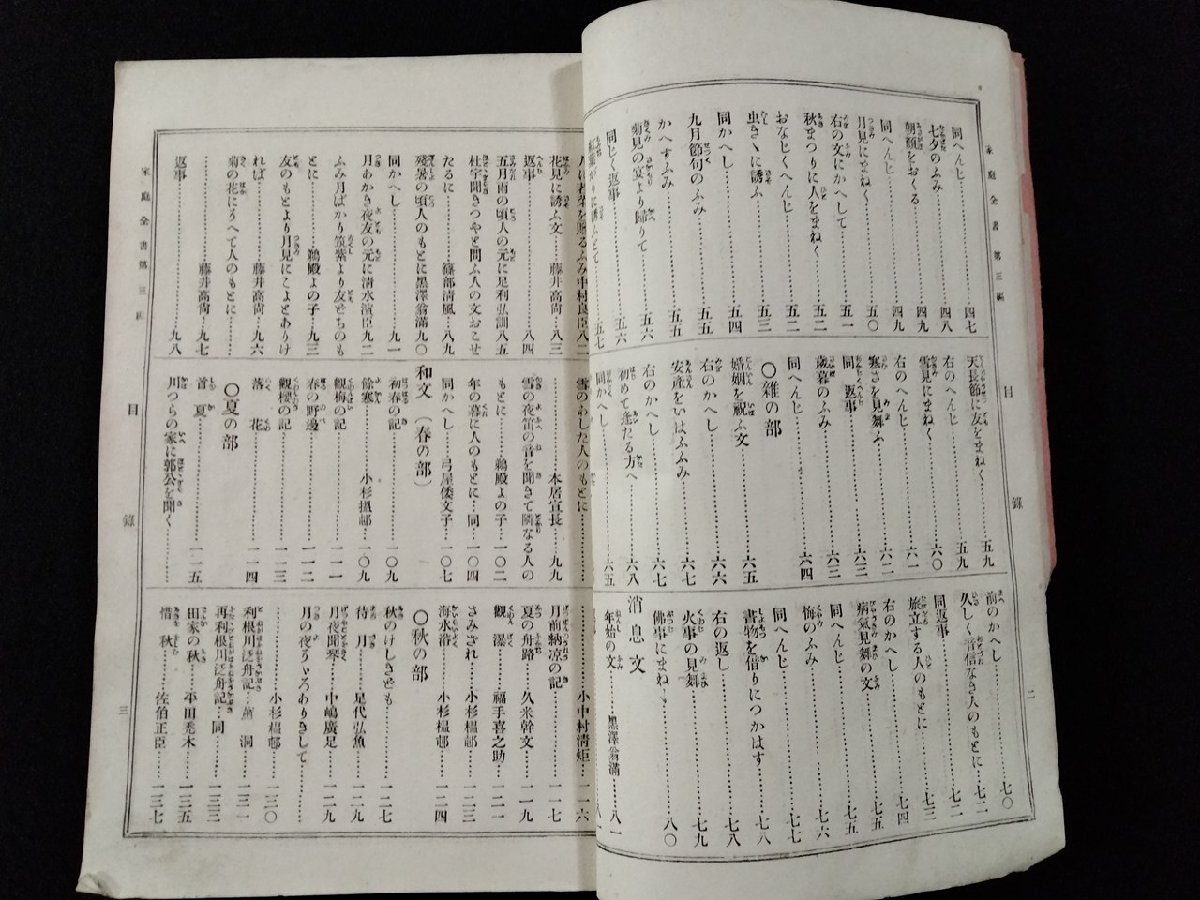 家庭全書 第三編
目
錄
二
同へんじ……四七
七夕のふみ……四八
朝顏をおくる……四九
同へんじ……四九
月見にまねく……五〇
右の文にかへして……五一
秋まつりに人をまねく……五二
おなじくへんじ……五二
虫きゝに誘ふ……五三
同かへし……五四
九月節句のふみ……五五
かへすふみ……五五
菊見の宴より歸りて……五六
同じく返事……五六
……五七
天長節に友をまねく……五九
右のへんじ……五九
雪見にまねく……六〇
右のへんじ……六一
寒さを見舞ふ……六二
同 返事……六三
歲暮のふみ……六三
同へんじ……六四
〇雜の部
婚姻を祝ふ文……六五
右のかへし……六六
安產をいはふふみ……六七
右のかへし……六七
初めて逢たる方へ……六八
同かへし……
前のかへし……七〇
久しく音信なき人のもとに……七二
同返事……七二
旅立する人のもとに……七三
右のかへし……七四
病氣見舞の文……七五
同へんじ……七五
悔のふみ……七六
同へんじ……七七
書物を借りにつかはす……七八
右の返し……七八
火事の見舞……七九
佛事にまねく……八〇
消息文
年始の文……黑澤翁滿……八一
家庭全書第三編
目
錄
三
中村良臣八二
花見に誘ふ文……藤井高尙……八三
返事……八四
五月雨の頃人の元に足利弘訓八五
杜宇聞きつやと問ふ人の文おこせ
たるに……篠部淸風…八九
殘暑の頃人のもとに黑澤翁滿九〇
同かへし……九一
月あかき夜友の元に淸水濱臣九二
ふみ月ばかり筑紫より友だちのも
とに……鵜殿よの子…九三
友のもとより月見にこよとありけ
れば……藤井高尙…九六
菊の花にそへて人のもとに……
……藤井高尙…九七
返事……九八
雪のあした人のもとに……
……本居宣長……九九
雪の夜笛の音を聞きて隣なる人の
もとに……鵜殿よの子…一〇二
年の暮に人のもとに…同…一〇四
同かへし……弓屋倭文子…一〇七
和文(春の部)
初春の記……一〇九
餘寒……小杉榲邨…一〇九
觀梅の記……一一一
春の野邊……一一二
觀櫻の記……一一三
落 花……一一四
〇夏の部
首 夏……一一五
川つらの家に郭公を聞く……
……小中村淸矩……一一六
月前納凉の記……一一七
夏の舟路……久米幹文…一一九
觀 瀑……福手喜之助…一二一
さみだれ……小杉榲邨…一二三
海水浴……小杉榲邨…一二四
〇秋の部
秋のけしきども……一二七
待 月……足代弘魚…一二九
月夜聞琴……中嶋廣足…一二九
月の夜うゝろありきして……
……小杉榲邨……一三〇
利根川泛舟記…洞…一三一
再利根川泛舟記…同……一三三
田家の秋……平田禿木…一三五
惜 秋……佐伯正臣……一三七